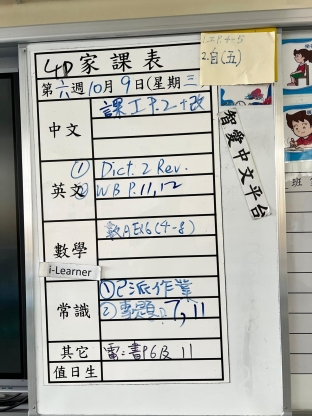 4D 家課表
1. 工P.4-5
2.自(五)
第六週10月9日(星期三)
中文
課工P.2-改
智愛中文平台
英文
① Dict. 2 Rev.
② WB P.11,12
數學
數AEx6(4-8)
i-Learner
常識
①已派作業
②專題: 7, 11
其它
雷:書P6及11
值日生
班